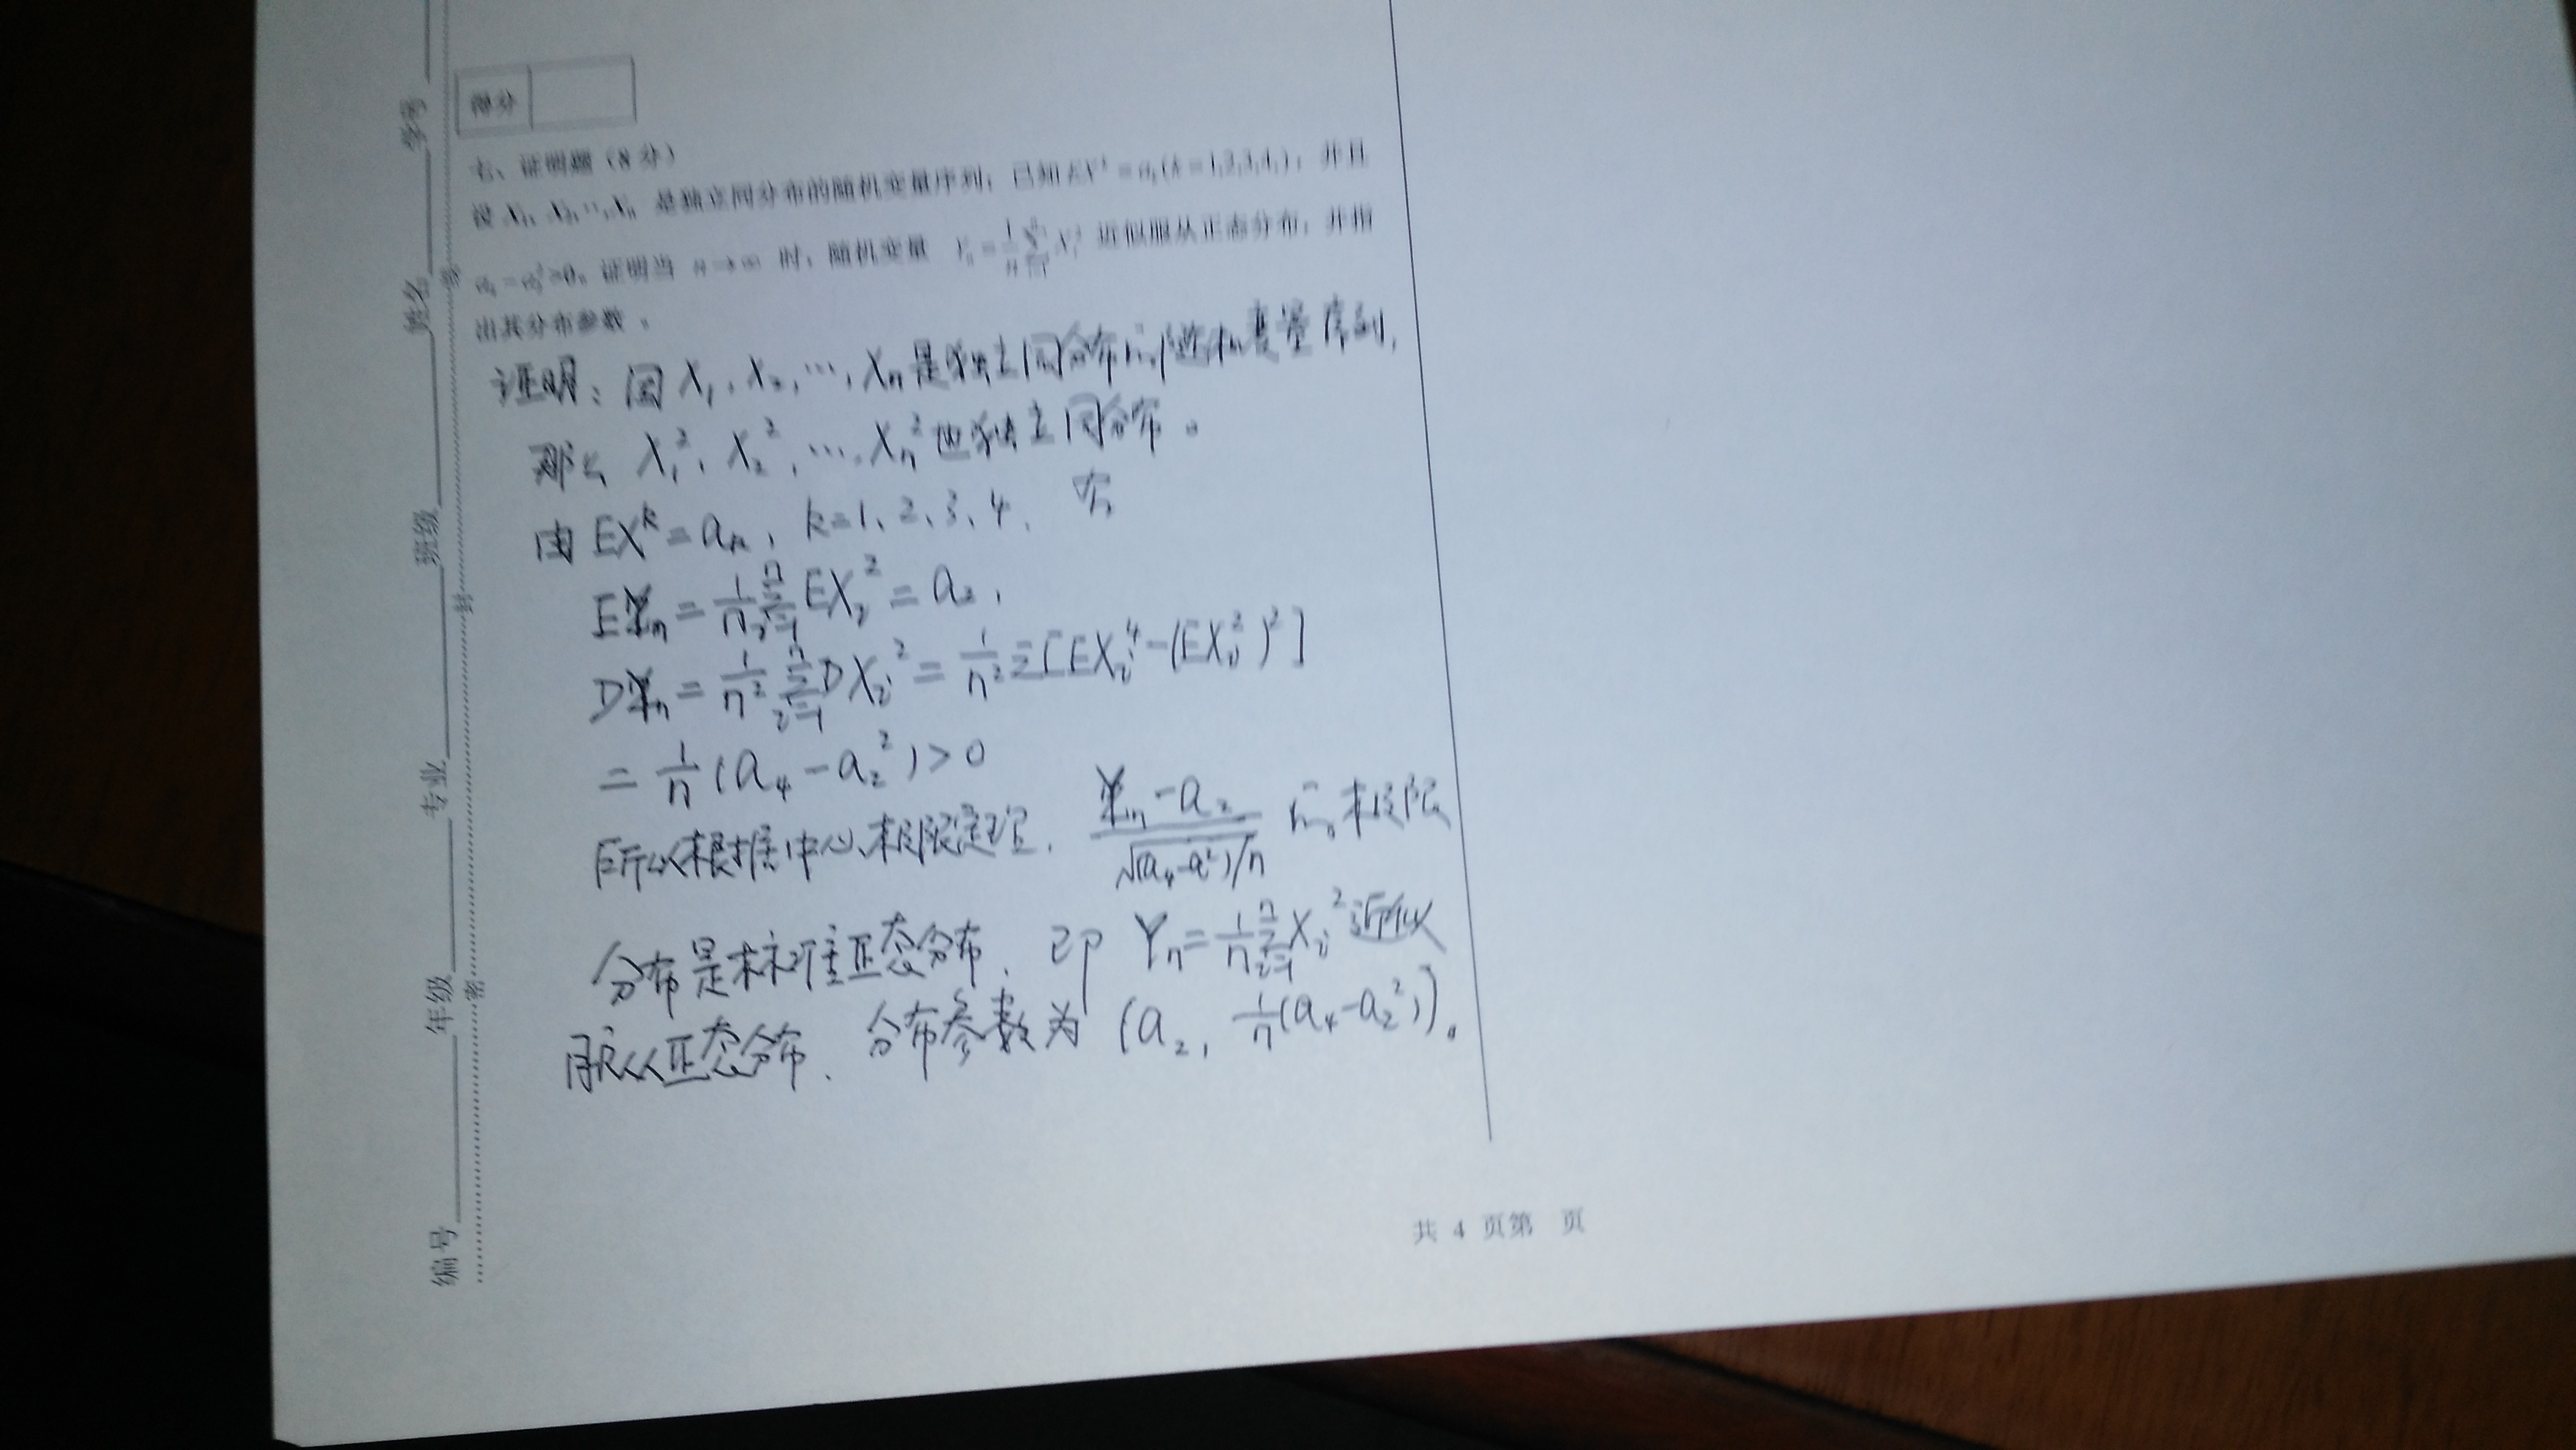 得分
七、证明题（8分）
设 X₁, X₂, ···, Xₙ 是独立同分布的随机变量序列，已知 EXᵏ = aₖ (k = 1,2,3,4,)，并且
a₄ − a₂² >0。证明当 n→∞ 时，随机变量 Yₙ = 1/n ∑ᵢ₌₁ⁿ Xᵢ² 近似服从正态分布，并指
出其分布参数。
证明：因 X₁, X₂, ···, Xₙ是独立同分布的随机变量序列,
那么 X₁², X₂², ···, Xₙ²也独立同分布。
由 EXᵏ = aₖ, k=1、2、3、4, 有
EYₙ = 1/n ∑ᵢ₌₁ⁿ EXᵢ² = a₂,
DYₙ = 1/n² ∑ᵢ₌₁ⁿ DXᵢ² = 1/n² ∑[EXᵢ⁴ − (EXᵢ²)²]
= 1/n (a₄ − a₂²) > 0
所以根据中心极限定理, (Yₙ − a₂)/√(a₄−a₂²)/n 的极限
分布是标准正态分布, 即 Yₙ = 1/n ∑ᵢ₌₁ⁿ Xᵢ² 近似
服从正态分布, 分布参数为 (a₂, 1/n(a₄−a₂²)]。
共 4 页第 页
学号
姓名
班级
专业
年级
编号
封
密